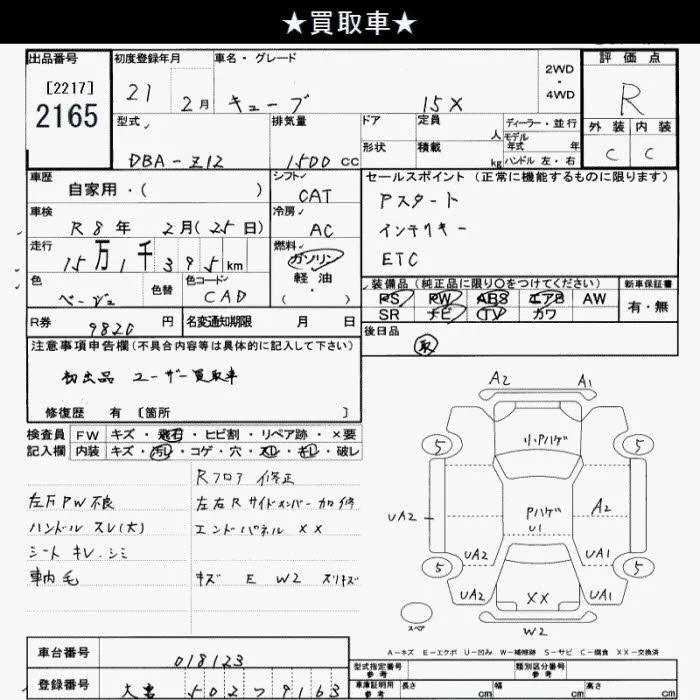 ★買取車★
出品番号 初度登録年月 車名・グレード 評価点
[2217] 2165 21 2月 キューブ 15X 2WD・4WD R
型式 排気量 ドア 定員 人 ディーラー・並行 外装 内装
モデル年式 年
DBA-Z12 1500 CC 形状 積載 kg ハンドル 左・右 C C
車歴 シフト セールスポイント (正常に機能するものに限ります)
自家用・( ) CAT Aスタート
車検 冷房 インテリキー
R8年 2月(25日) AC ETC
走行 燃料
15万1千395km ガソリン
軽油
( )
色 色替 色コード 装備品(純正品に限り○をつけてください) 新車保証書
ベージュ CAD PS PW ABS エアB AW 有・無
SR ナビ TV カワ
R券 9820円 名変通知期限 月 日 後日品
取
注意事項申告欄(不具合内容等は具体的に記入して下さい)
初出品 ユーザー買取車
修復歴 有 〔箇所 〕
検査員記入欄 FW キズ・飛石・ヒビ割・リペア跡・×要
内装 キズ・汚レ・コゲ・穴・スレ・キレ・破レ
Rフロア 修正
左右Rサイドメンバー 加修
エンドパネル XX
キズ E W2 スリキズ
左万PW不良
ハンドル スレ(大)
シート キレ.シミ
車内 毛
A2 A1
小Pハゲ
5 5
UA2 Pハゲ A2
U1
UA2 UA1
5 5
UA2 XX UA1
スペア
W2
A-キズ E-エクボ U-凹み W-補修跡 S-サビ C-腐食 XX-交換済
車台番号 018123
登録番号 502 9163
型式指定番号 参考 類別区分番号 参考
車庫証明用 参考 長さ cm 幅 cm 高さ cm